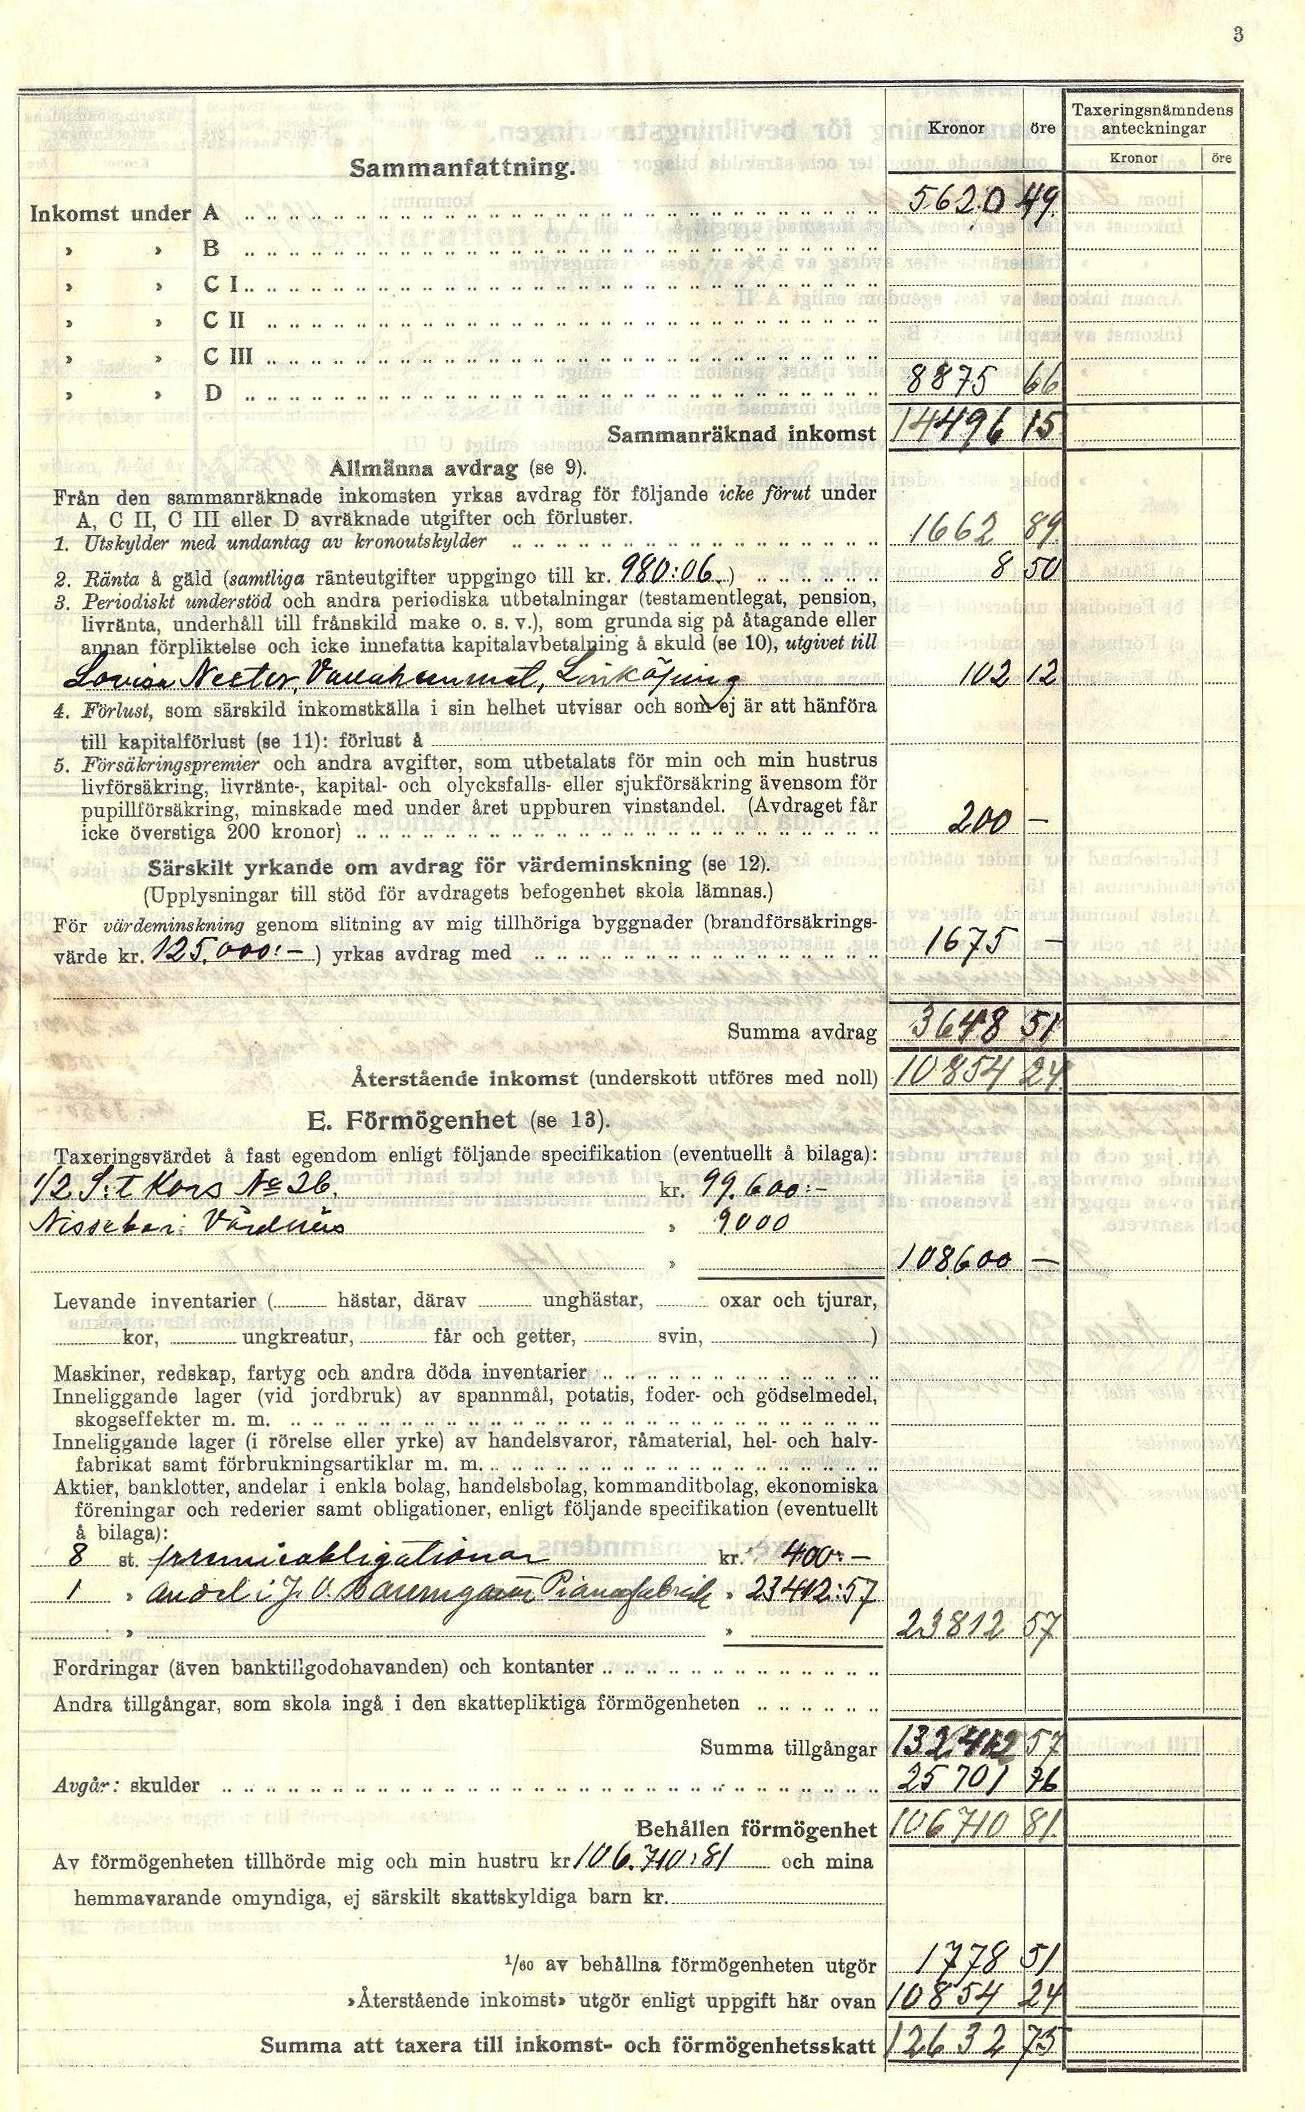 3
Kronor öre Taxeringsnämndens anteckningar
Kronor öre
Sammanfattning.
Inkomst under A 5620 49
» » B
» » C I
» » C II
» » C III
» » D 8875 66
Sammanräknad inkomst 14496 15
Allmänna avdrag (se 9).
Från den sammanräknade inkomsten yrkas avdrag för följande icke förut under
A, C II, C III eller D avräknade utgifter och förluster.
1. Utskylder med undantag av kronoutskylder 1662 89
2. Ränta å gäld (samtliga ränteutgifter uppgingo till kr. 980:06) 8 50
3. Periodiskt understöd och andra periodiska utbetalningar (testamentlegat, pension,
livränta, underhåll till frånskild make o. s. v.), som grunda sig på åtagande eller
annan förpliktelse och icke innefatta kapitalavbetalning å skuld (se 10), utgivet till
Lovisa Linköping 102 12
4. Förlust, som särskild inkomstkälla i sin helhet utvisar och som ej är att hänföra
till kapitalförlust (se 11): förlust å
5. Försäkringspremier och andra avgifter, som utbetalats för min och min hustrus
livförsäkring, livränte-, kapital- och olycksfalls- eller sjukförsäkring ävensom för
pupillförsäkring, minskade med under året uppburen vinstandel. (Avdraget får
icke överstiga 200 kronor) 200 —
Särskilt yrkande om avdrag för värdeminskning (se 12).
(Upplysningar till stöd för avdragets befogenhet skola lämnas.)
För värdeminskning genom slitning av mig tillhöriga byggnader (brandförsäkrings-
värde kr. 125.000:—) yrkas avdrag med 1675 —
Summa avdrag 3648 51
Återstående inkomst (underskott utföres med noll) 10854 24
E. Förmögenhet (se 13).
Taxeringsvärdet å fast egendom enligt följande specifikation (eventuellt å bilaga):
1/2 S:t Kors No 26. kr. 99.600:—
Vårdnäs » 9000
» 108600 —
Levande inventarier ( hästar, därav unghästar, oxar och tjurar,
kor, ungkreatur, får och getter, svin, )
Maskiner, redskap, fartyg och andra döda inventarier
Inneliggande lager (vid jordbruk) av spannmål, potatis, foder- och gödselmedel,
skogseffekter m. m.
Inneliggande lager (i rörelse eller yrke) av handelsvaror, råmaterial, hel- och halv-
fabrikat samt förbrukningsartiklar m. m.
Aktier, banklotter, andelar i enkla bolag, handelsbolag, kommanditbolag, ekonomiska
föreningar och rederier samt obligationer, enligt följande specifikation (eventuellt
å bilaga):
8 st. premieobligationer kr. 400:—
1 » andel i J. O. Pianofabrik » 23412:57
» » 23812 57
Fordringar (även banktillgodohavanden) och kontanter
Andra tillgångar, som skola ingå i den skattepliktiga förmögenheten
Summa tillgångar 132.412 57
Avgår: skulder 25701 76
Behållen förmögenhet 106710 81
Av förmögenheten tillhörde mig och min hustru kr 106.710:81 och mina
hemmavarande omyndiga, ej särskilt skattskyldiga barn kr.
1/60 av behållna förmögenheten utgör 1778 51
»Återstående inkomst» utgör enligt uppgift här ovan 10854 24
Summa att taxera till inkomst- och förmögenhetsskatt 12632 75